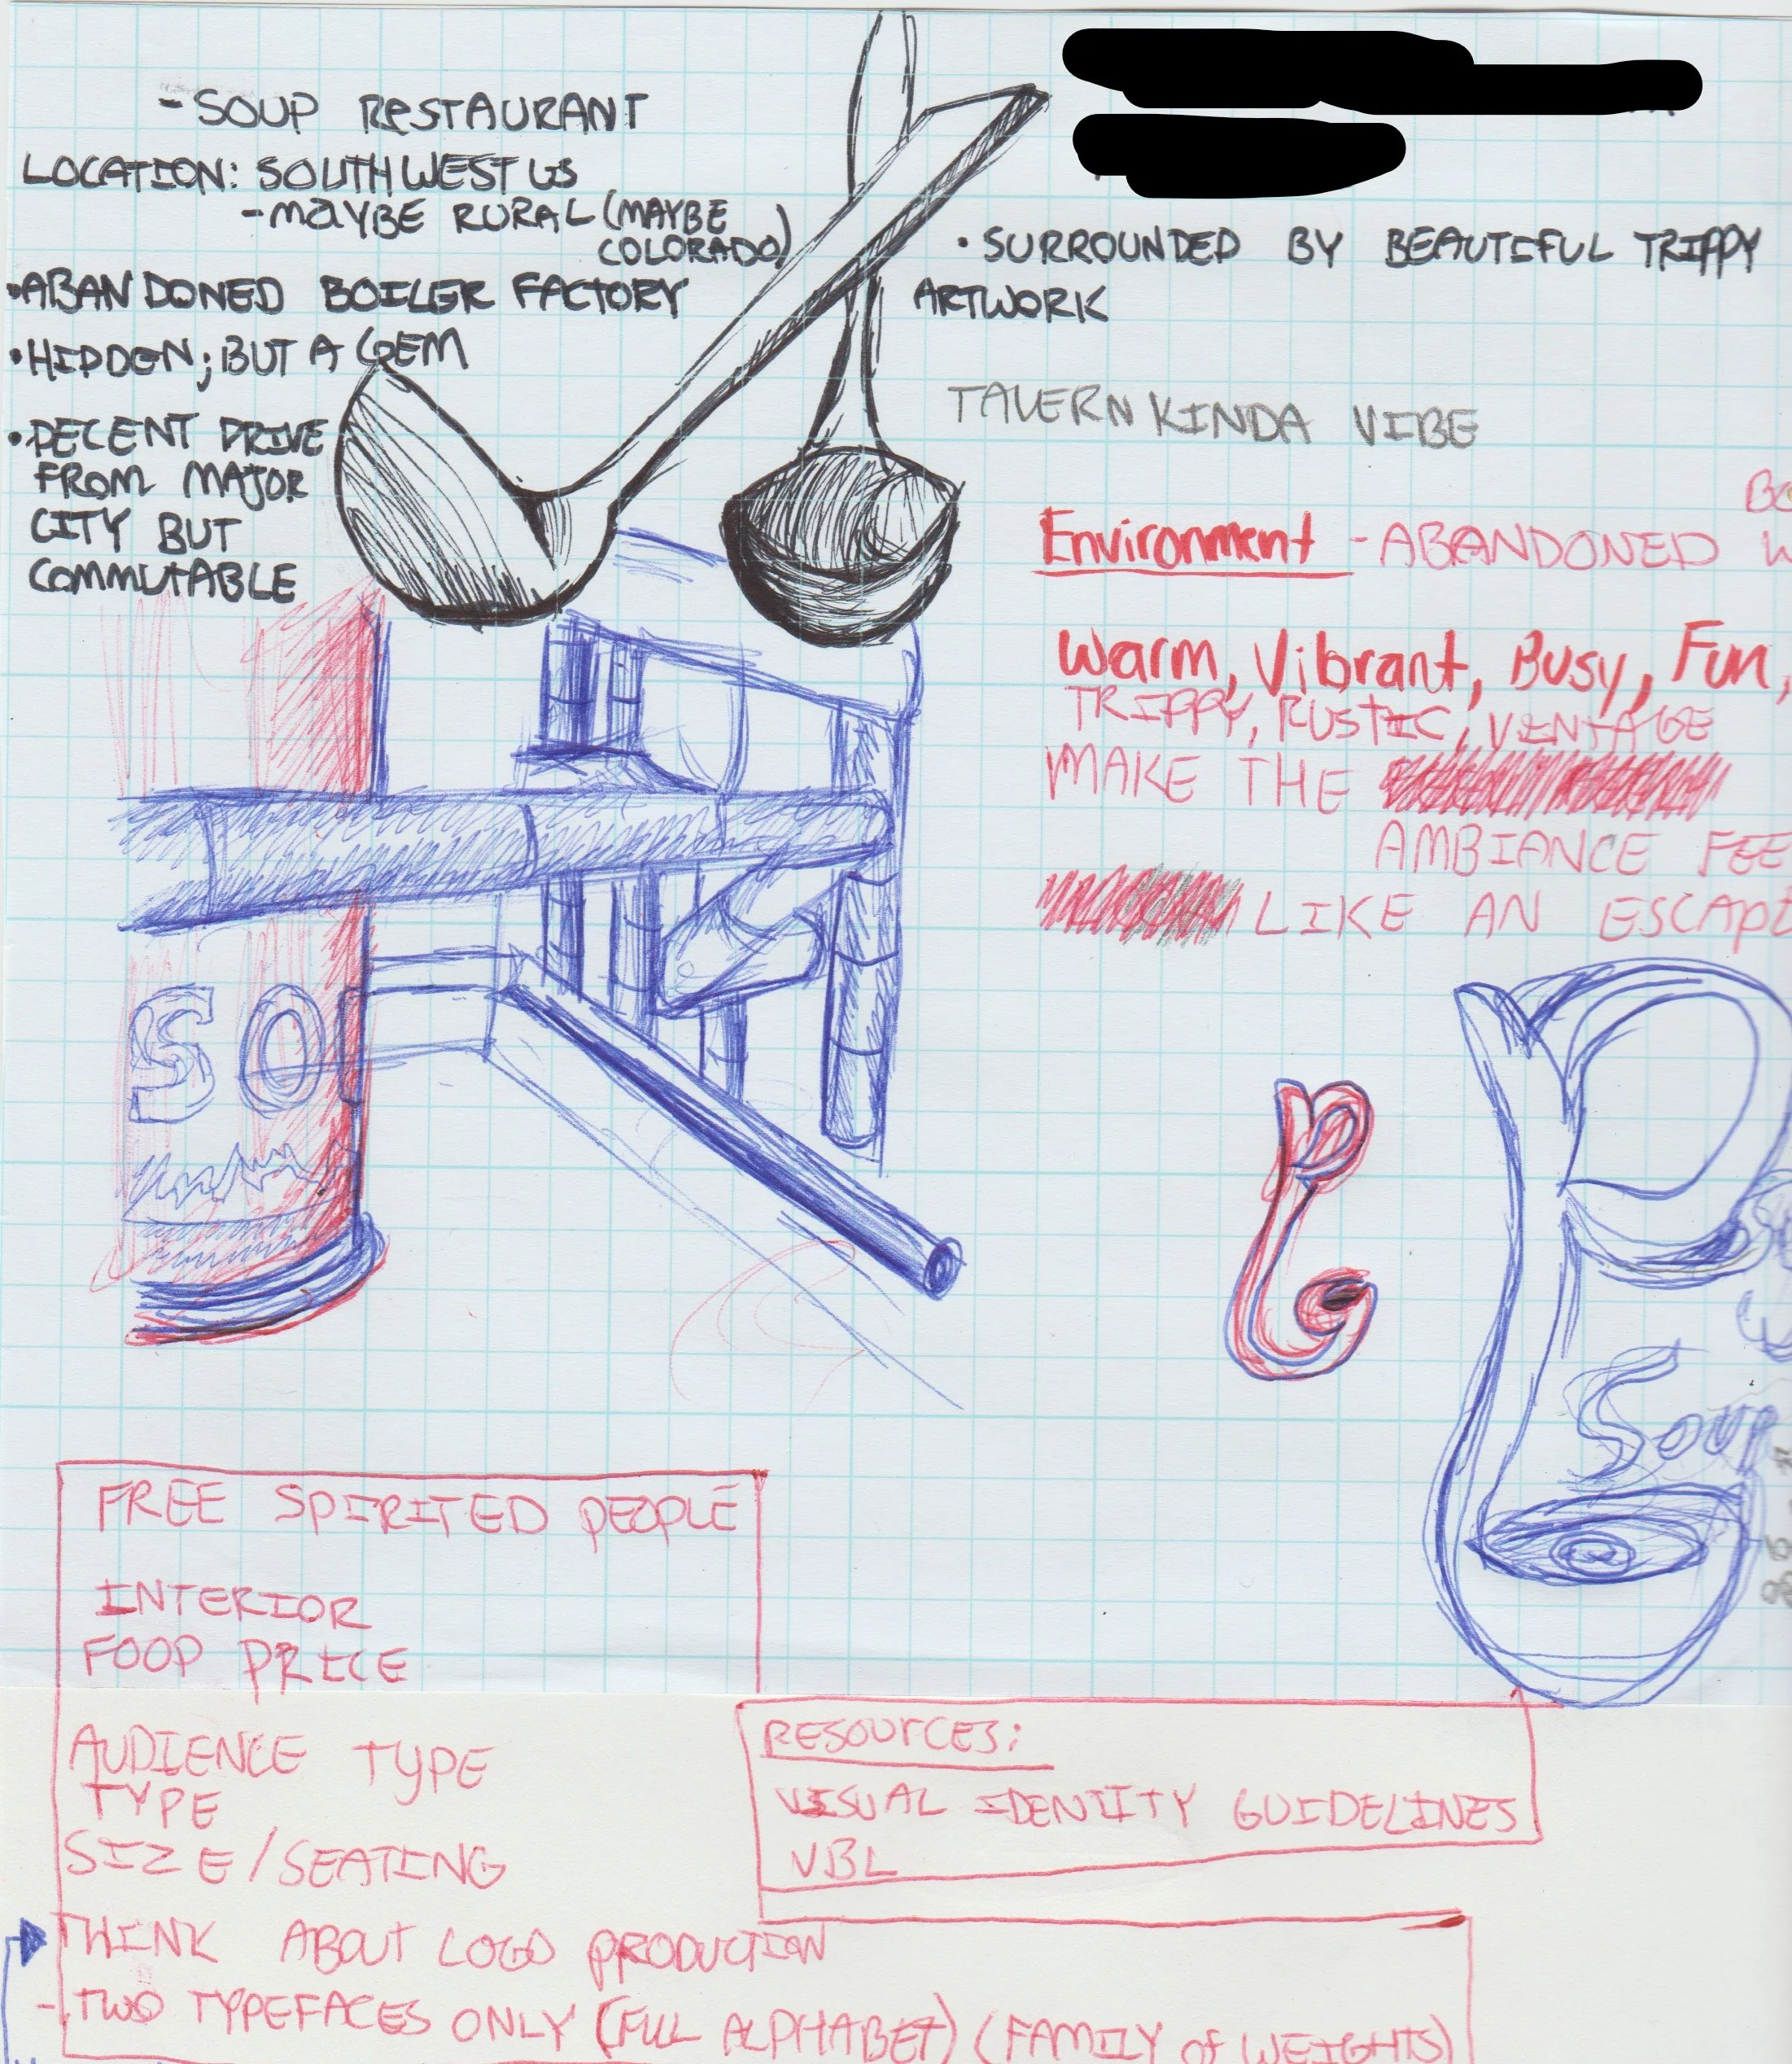 - SOUP RESTAURANT
LOCATION: SOUTHWEST US
- MAYBE RURAL (MAYBE
COLORADO)
• ABANDONED BOILER FACTORY
• HIDDEN; BUT A GEM
• DECENT DRIVE
FROM MAJOR
CITY BUT
COMMUTABLE
• SURROUNDED BY BEAUTIFUL TRIPPY
ARTWORK
TAVERN KINDA VIBE
BO
Environment - ABANDONED W
Warm, Vibrant, Busy, Fun,
TRIPPY, RUSTIC, VINTAGE
MAKE THE
AMBIANCE FEE
LIKE AN ESCAPE
SO
Soup
FREE SPIRITED PEOPLE
INTERIOR
FOOD PRICE
AUDIENCE TYPE
TYPE
SIZE/SEATING
RESOURCES:
VISUAL IDENTITY GUIDELINES
VBL
THINK ABOUT LOGO PRODUCTION
- TWO TYPEFACES ONLY (FULL ALPHABET) (FAMILY of WEIGHTS)